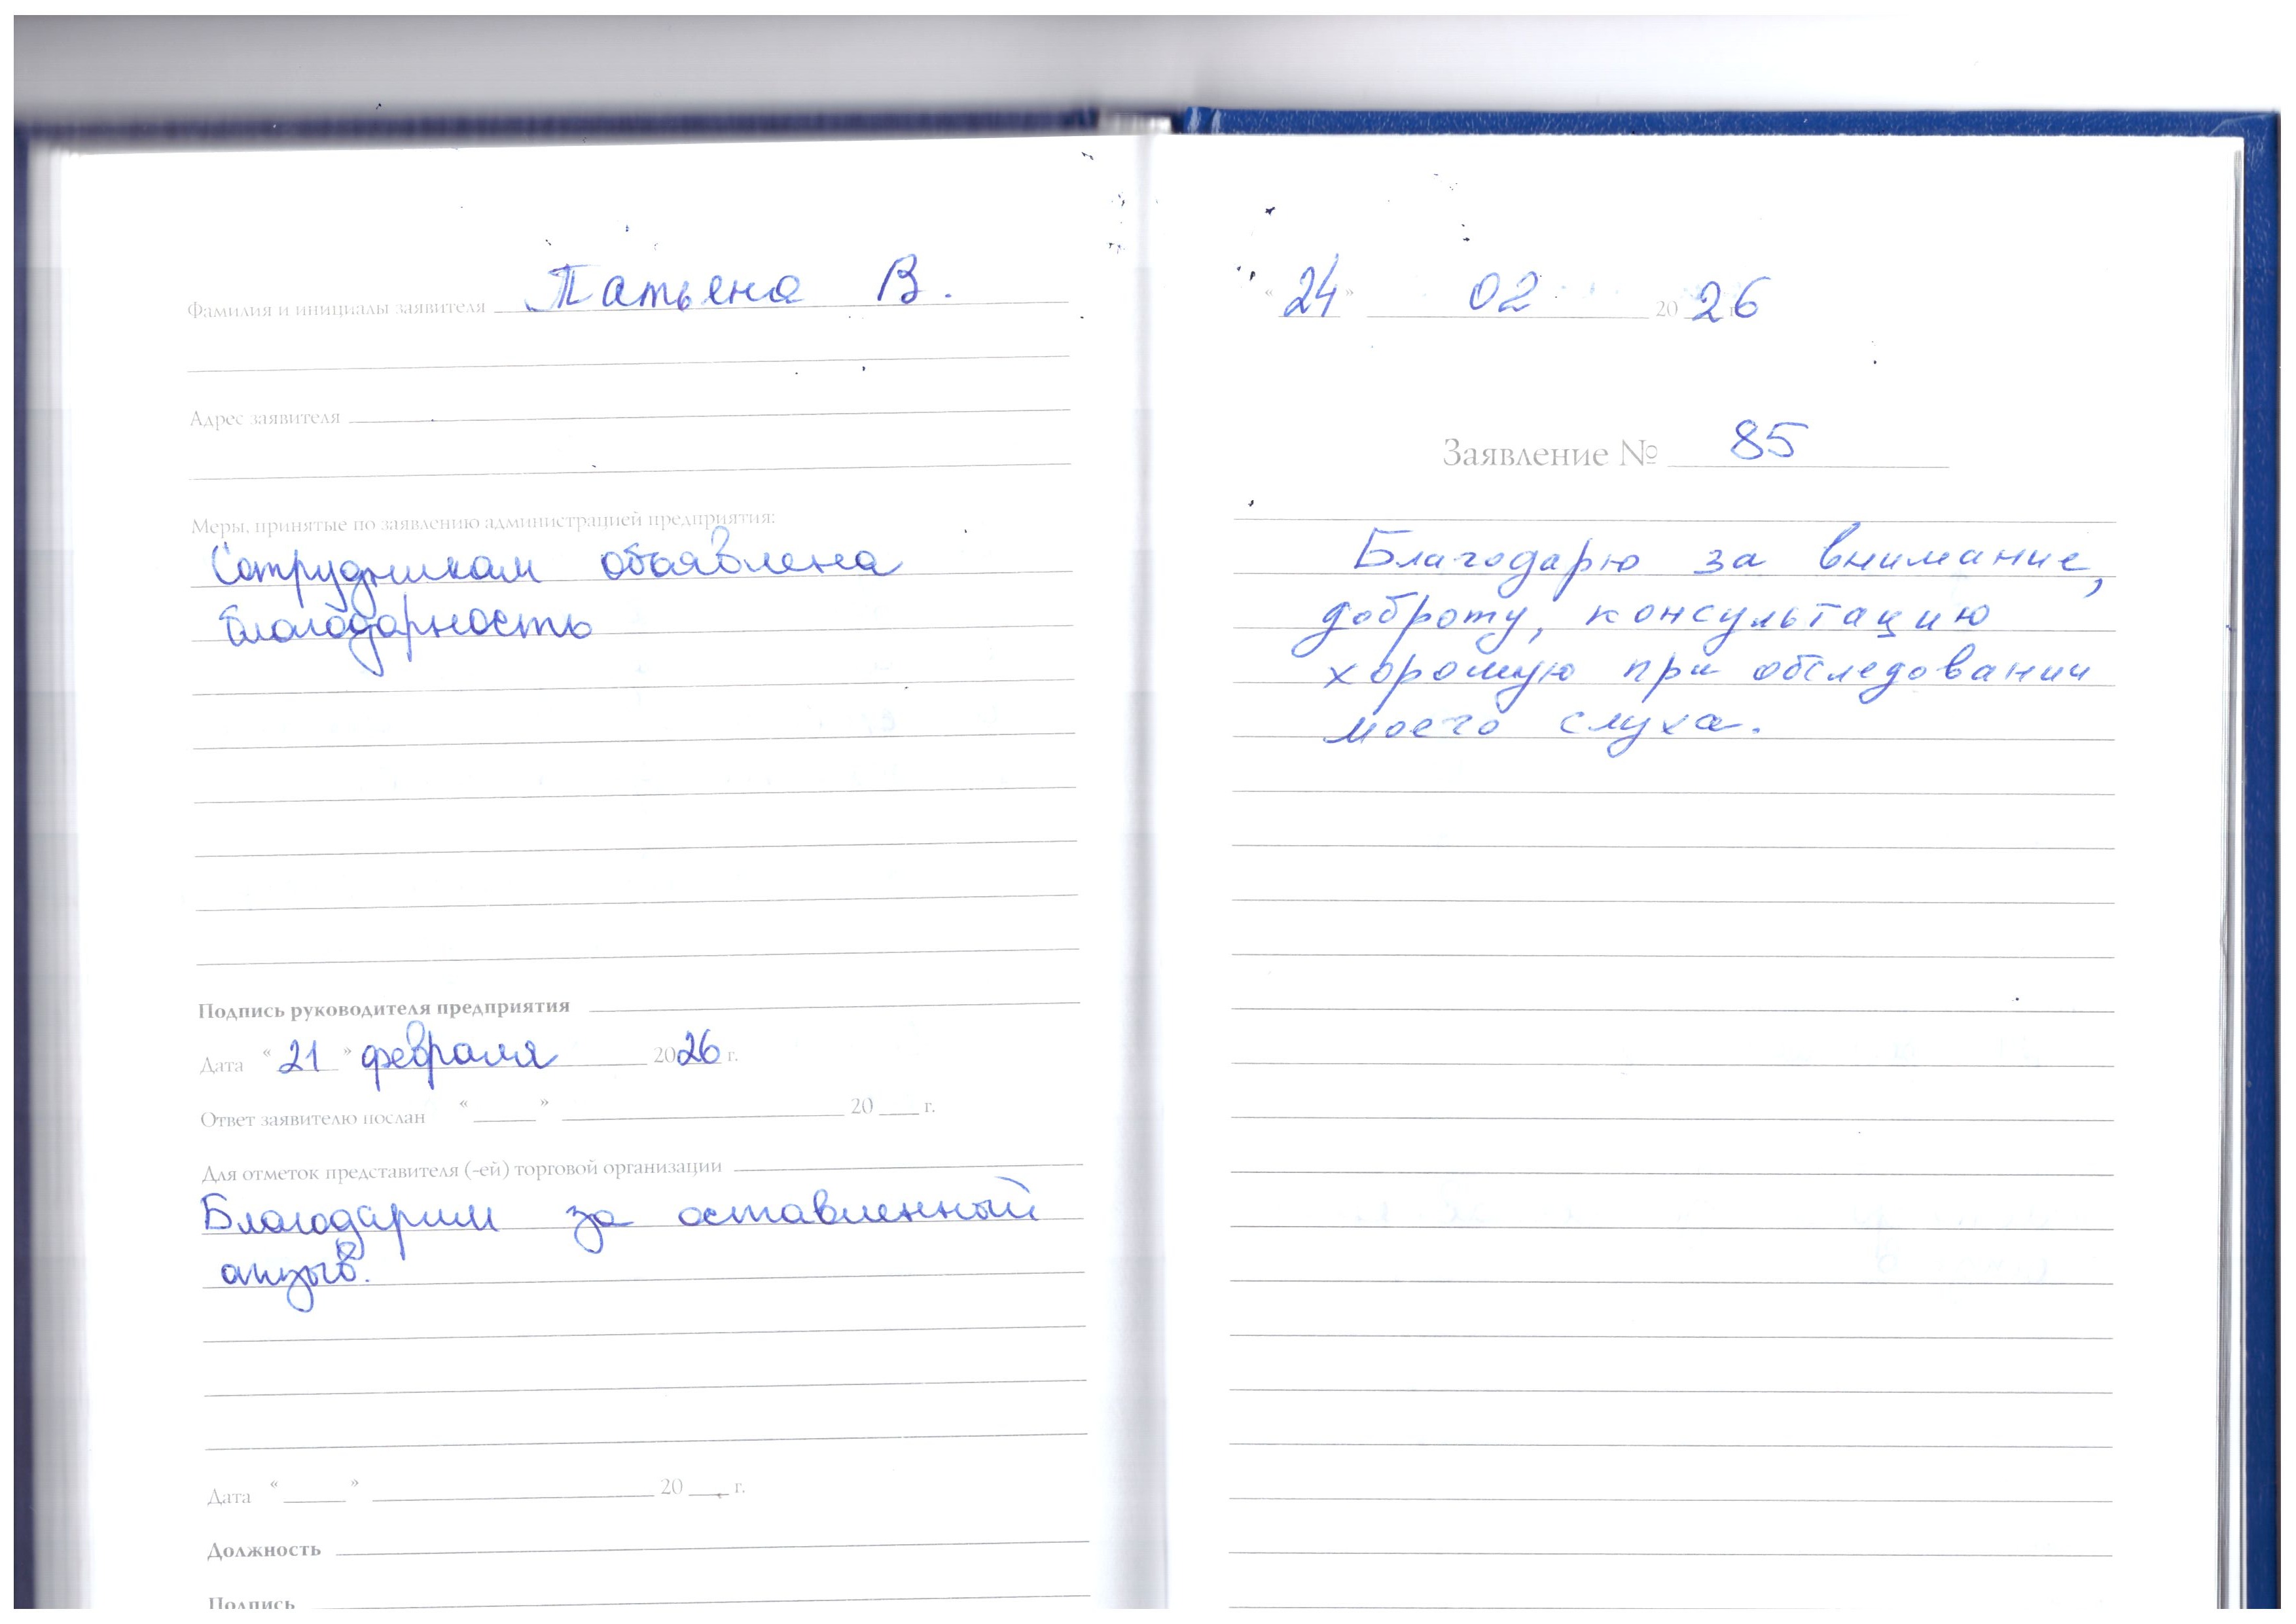 Фамилия и инициалы заявителя Татьяна В.
Адрес заявителя
Меры, принятые по заявлению администрацией предприятия:
Сотрудникам объявлена
благодарность
Подпись руководителя предприятия
Дата "21" февраля 2026 г.
Ответ заявителю послан " " 20 г.
Для отметок представителя (-ей) торговой организации
Благодарим за оставленный
отзыв.
Дата " " 20 г.
Должность
Подпись
"24" 02 2026 г.
Заявление № 85
Благодарю за внимание,
доброту, консультацию
хорошую при обследовании
моего слуха.